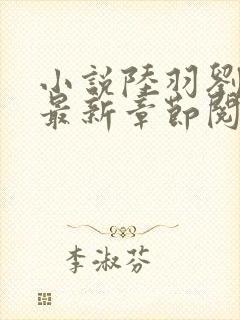 小説陸羽劉
最新章節閱
李淑芬